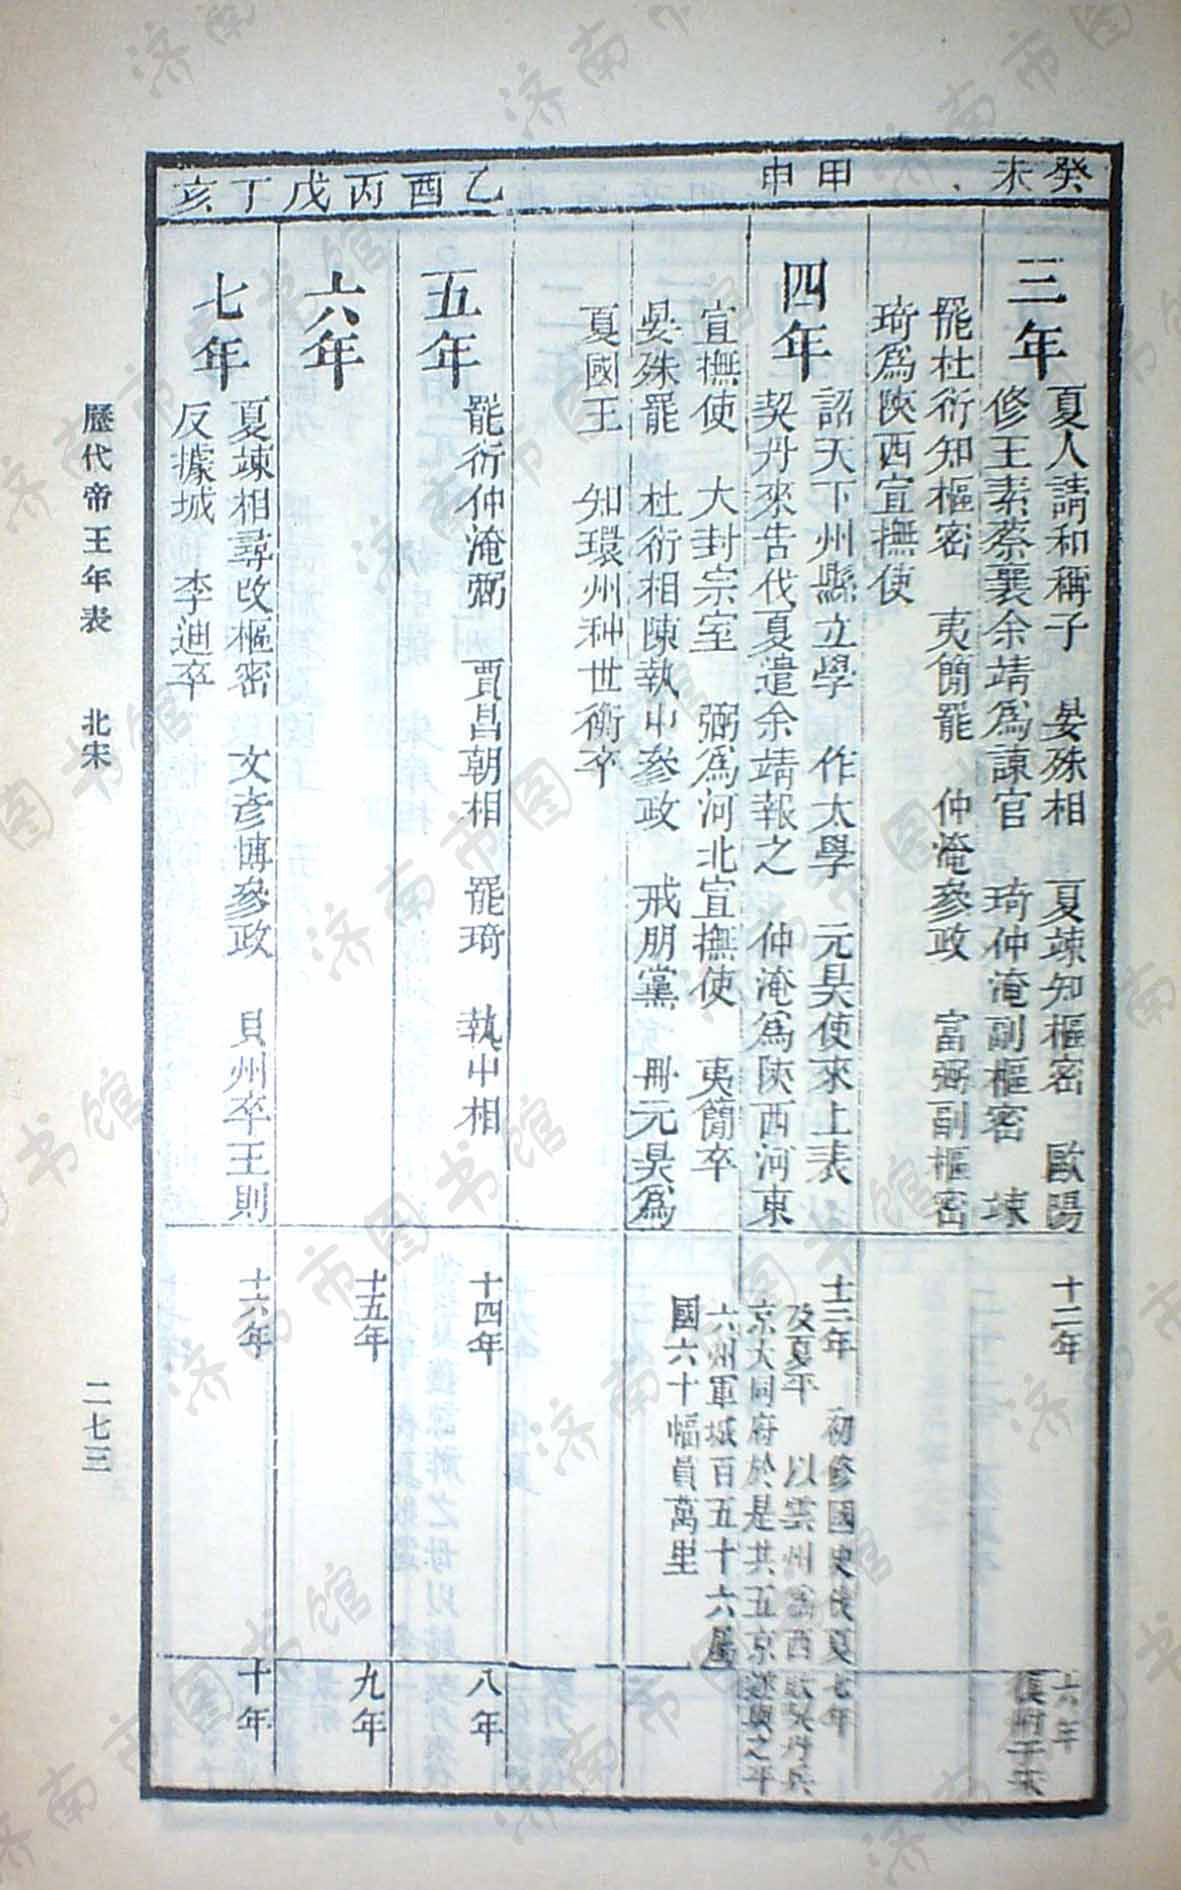 癸未
三年
夏人請和稱子　晏殊相　夏竦知樞密　歐陽
修王素蔡襄余靖爲諫官　琦仲淹副樞密　竦
罷杜衍知樞密　夷簡罷　仲淹參政　富弼副樞密
琦爲陝西宣撫使
十二年
六年
甲申
四年
詔天下州縣立學　作太學　元昊使來上表
契丹來告伐夏遣余靖報之　仲淹爲陝西河東
宣撫使　大封宗室　弼爲河北宣撫使　夷簡卒
晏殊罷　杜衍相陳執中參政　戒朋黨　冊元昊爲
夏國王　知環州种世衡卒
十三年　初修國史　伐夏七年
及夏平　以雲州爲西京
京大同府於是共五京
六州軍城百五十六屬
國六十幅員萬里
乙酉
五年
罷衍仲淹弼　賈昌朝相　罷琦　執中相
十四年
八年
丙戌
六年
十五年
九年
丁亥
七年
夏竦相尋改樞密　文彥博參政　貝州卒王則
反據城　李迪卒
十六年
十年
歷代帝王年表　北宋
二七三
济南市图书馆